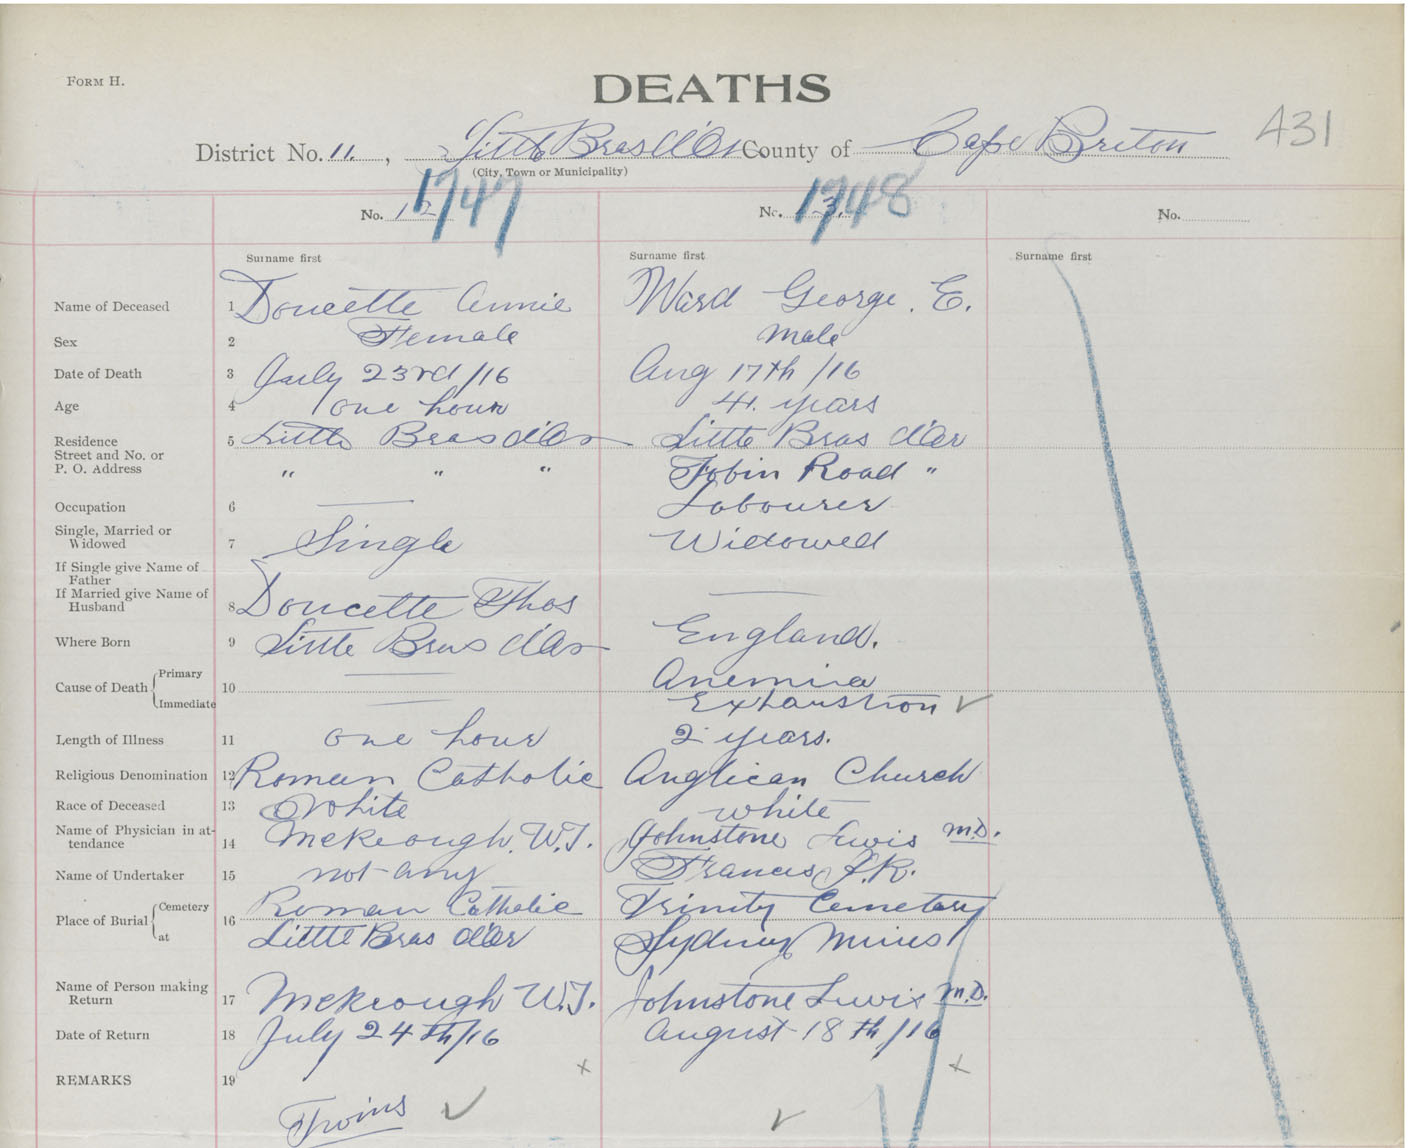 FORM H.
DEATHS
A31
District No. 11. , Little Bras d'Or County of Cape Breton
(City, Town or Municipality)
1747 1748
No. 12 No. 13. No.
Surname first Surname first Surname first
Name of Deceased 1 Doucette Annie Ward George. E.
Sex 2 Female Male
Date of Death 3 July 23rd/16 Aug 17th /16
Age 4 one hour 41. years
Residence 5 Little Bras d'Or Little Bras d'Or
Street and No. or
P. O. Address " " " Tobin Road "
Occupation 6 Labourer
Single, Married or
Widowed 7 Single Widowed
If Single give Name of
Father
If Married give Name of
Husband 8 Doucette Thos
Where Born 9 Little Bras d'Or England.
Cause of Death Primary 10 Anemia
Immediate Exhaustion ✓
Length of Illness 11 one hour 2 years.
Religious Denomination 12 Roman Catholic Anglican Church
Race of Deceased 13 White white
Name of Physician in at-
tendance 14 McKeough. W.J. Johnstone Lewis M.D.
Name of Undertaker 15 not any Francis J.R.
Place of Burial Cemetery 16 Roman Catholic Trinity Cemetary
at Little Bras d'Or Sydney Mines
Name of Person making
Return 17 McKeough W.J. Johnstone Lewis M.D.
Date of Return 18 July 24th/16 August 18th/16
x x
REMARKS 19
Twins ✓ ✓